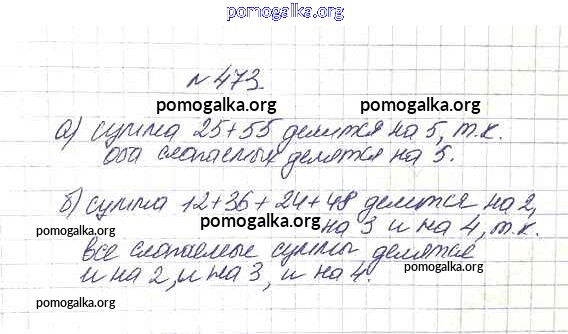 pomogalka.org
№ 473.
pomogalka.org pomogalka.org
а) сумма 25+55 делится на 5, т.к.
оба слагаемых делятся на 5.
pomogalka.org
б) сумма 12+36+24+48 делится на 2,
pomogalka.org
на 3 и на 4, т.к.
pomogalka.org
все слагаемые суммы делятся
pomogalka.org
и на 2, и на 3, и на 4.
pomogalka.org
pomogalka.org